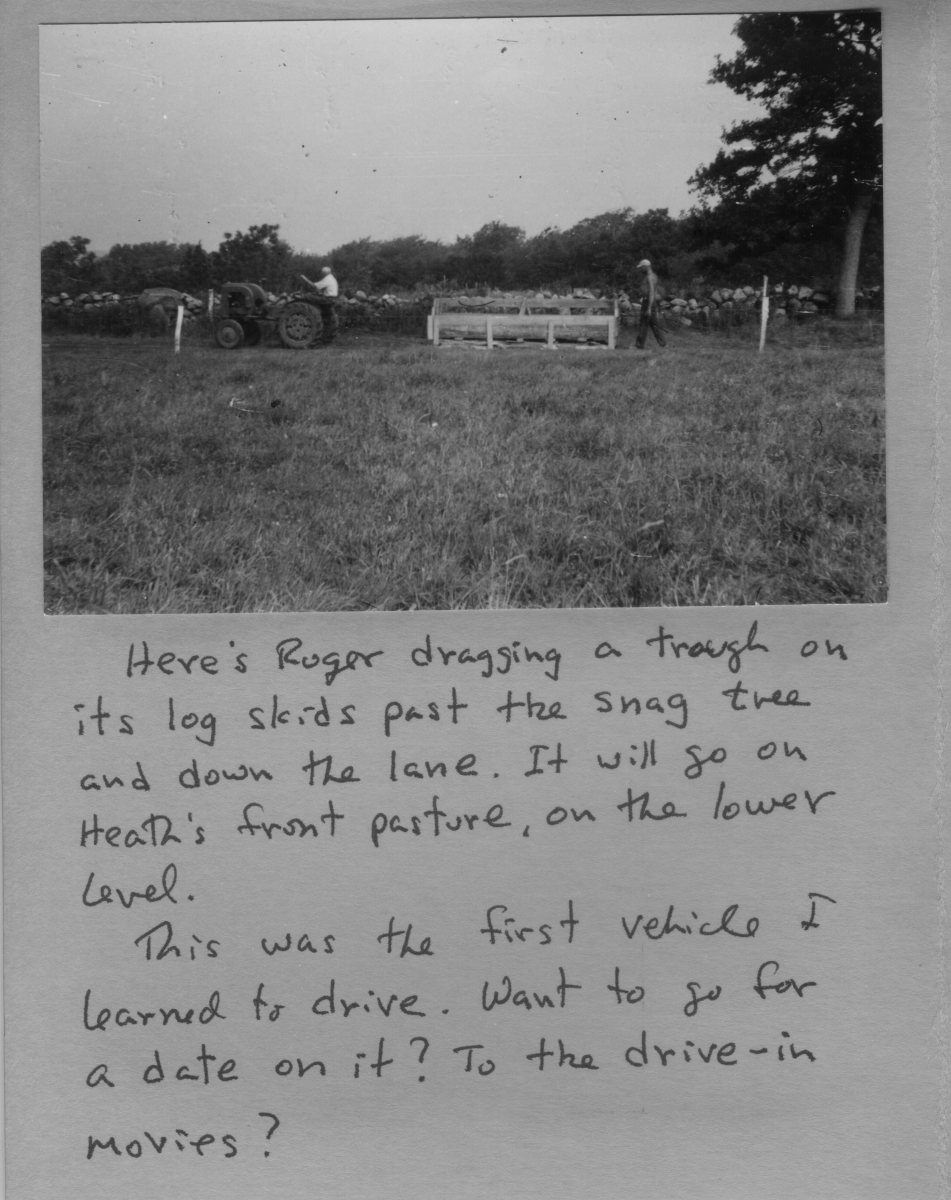 Here's Roger dragging a trough on
its log skids past the snag tree
and down the lane. It will go on
Heath's front pasture, on the lower
level.
This was the first vehicle I
learned to drive. Want to go for
a date on it? To the drive-in
movies?